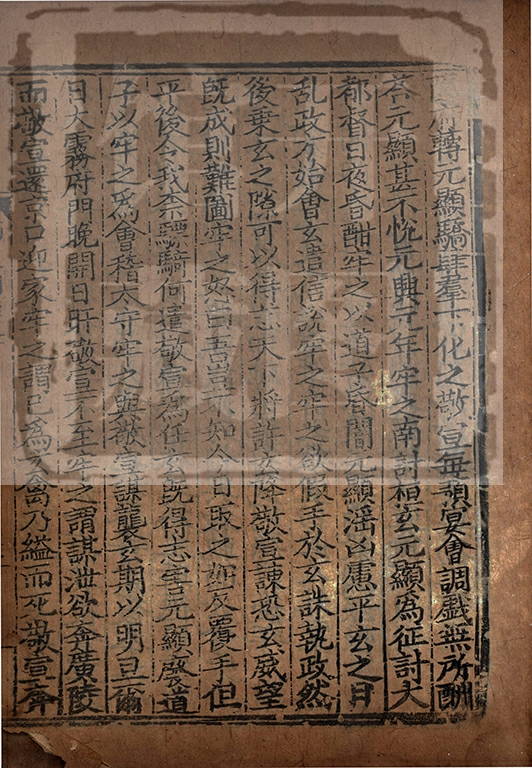 府轉元顯驕肆羣下化之敬宣每預宴會調戲無所酬
荅元顯甚不悅元興元年牢之南討桓玄元顯為征討大
都督日夜昏酣牢之以道子昏闇元顯淫凶慮平玄之日
乱政方始會玄遣信說牢之牢之欲假手於玄誅執政然
後乗玄之隙可以得志天下將許玄降敬宣諫恐玄威望
既成則難圖牢之怒曰吾豈不知今日取之如反覆手但
平後令我柰驃騎何遣敬宣為任玄既得志害元顯廢道
子以牢之為會稽太守牢之與敬宣謀襲玄期以明旦爾
日大霧府門晚開日旰敬宣不至牢之謂謀泄欲奔廣陵
而敬宣還京口迎家牢之謂已為玄禽乃縊而死敬宣奔